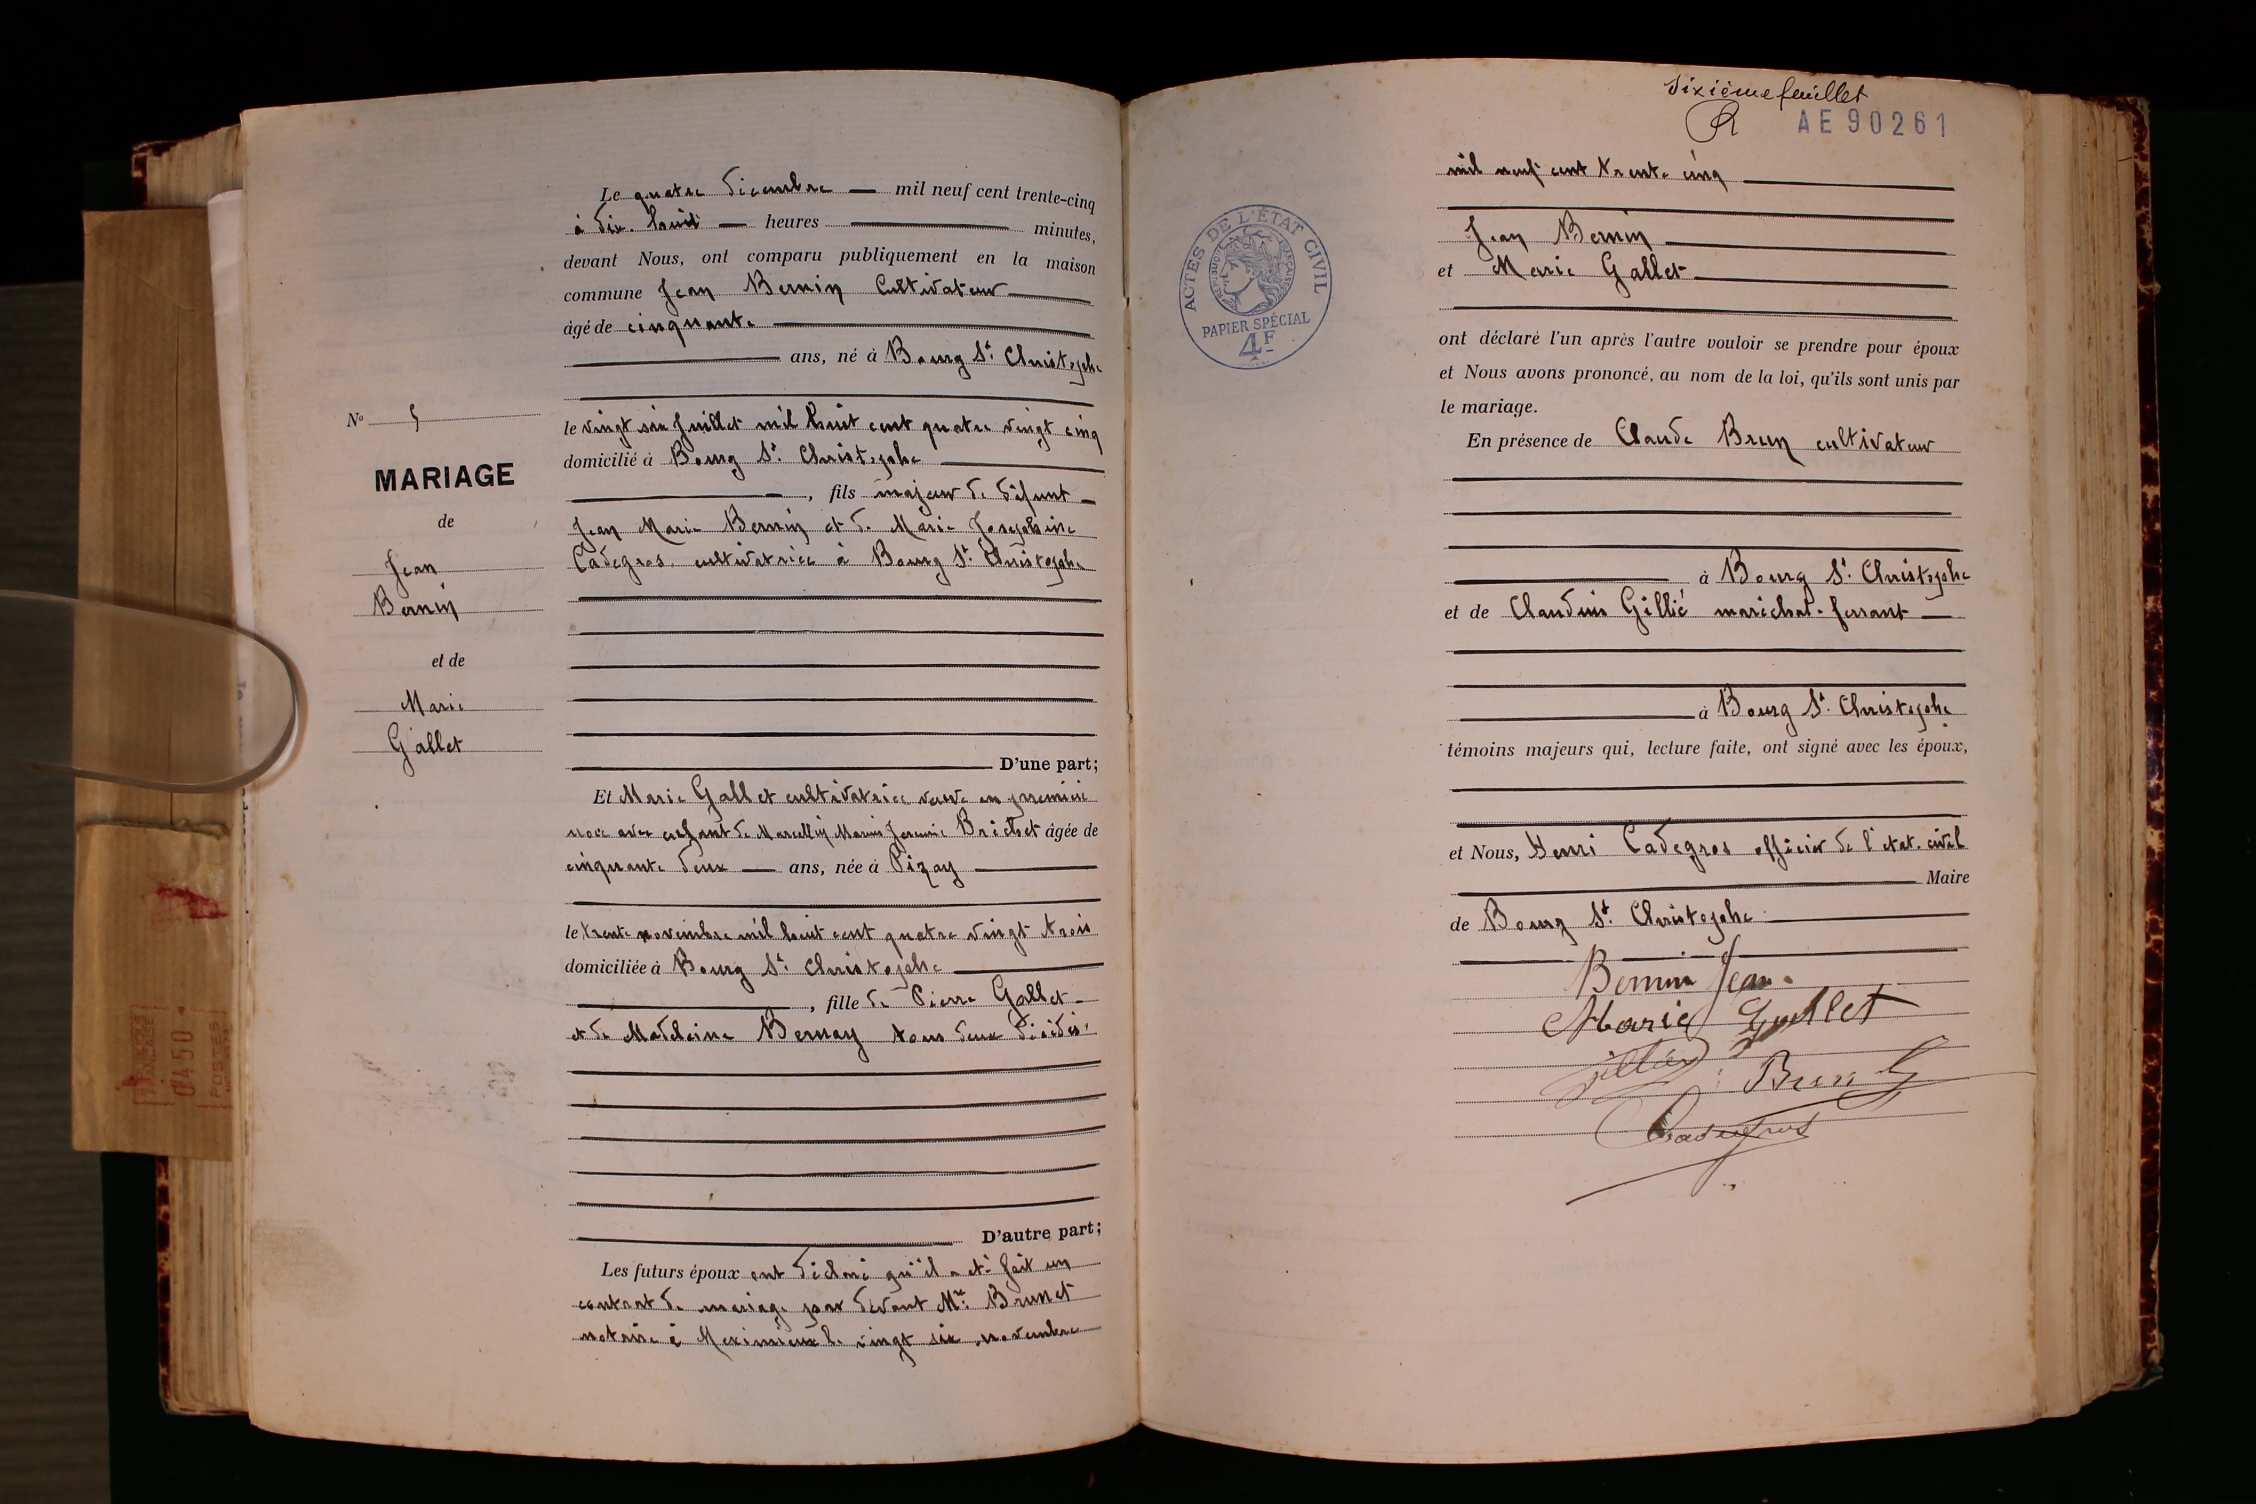 Le quatre décembre mil neuf cent trente-cinq
à dix-huit heures minutes,
devant Nous, ont comparu publiquement en la maison
commune Jean Bernin Cultivateur
âgé de cinquante
ans, né à Bourg St. Christophe
le vingt six Juillet mil huit cent quatre vingt cinq
domicilié à Bourg St. Christophe
, fils majeur de défunt
Jean Marie Bernin et de Marie Josephine
Cadegros cultivatrice à Bourg St. Christophe
D'une part;
Et Marie Gallet cultivatrice veuve en première
noce avec enfant de Marcellin Marius Brichet âgée de
cinquante deux ans, née à Pizay
le trente novembre mil huit cent quatre vingt trois
domiciliée à Bourg St. Christophe
, fille de Pierre Gallet
et de Madeleine Bernay tous deux décédés.
D'autre part;
Les futurs époux ont déclaré qu'il a été fait un
contrat de mariage par devant Me. Brunet
notaire à Meximieux le vingt six novembre
No 5
MARIAGE
de
Jean
Bernin
et de
Marie
Gallet
0450
POSTES
Sixième feuillet
AE90261
mil neuf cent trente cinq
ACTES DE L'ÉTAT CIVIL
RÉPUBLIQUE FRANÇAISE
PAPIER SPÉCIAL
4F
Jean Bernin
et Marie Gallet
ont déclaré l'un après l'autre vouloir se prendre pour époux
et Nous avons prononcé, au nom de la loi, qu'ils sont unis par
le mariage.
En présence de Claude Brun cultivateur
à Bourg St. Christophe
et de Claudius Gillié maréchal-ferrant
à Bourg St. Christophe
témoins majeurs qui, lecture faite, ont signé avec les époux,
et Nous, Henri Cadegros officier de l'état-civil
Maire
de Bourg St. Christophe
Bernin Jean
Marie Gallet
Gillié Brun
Cadegros